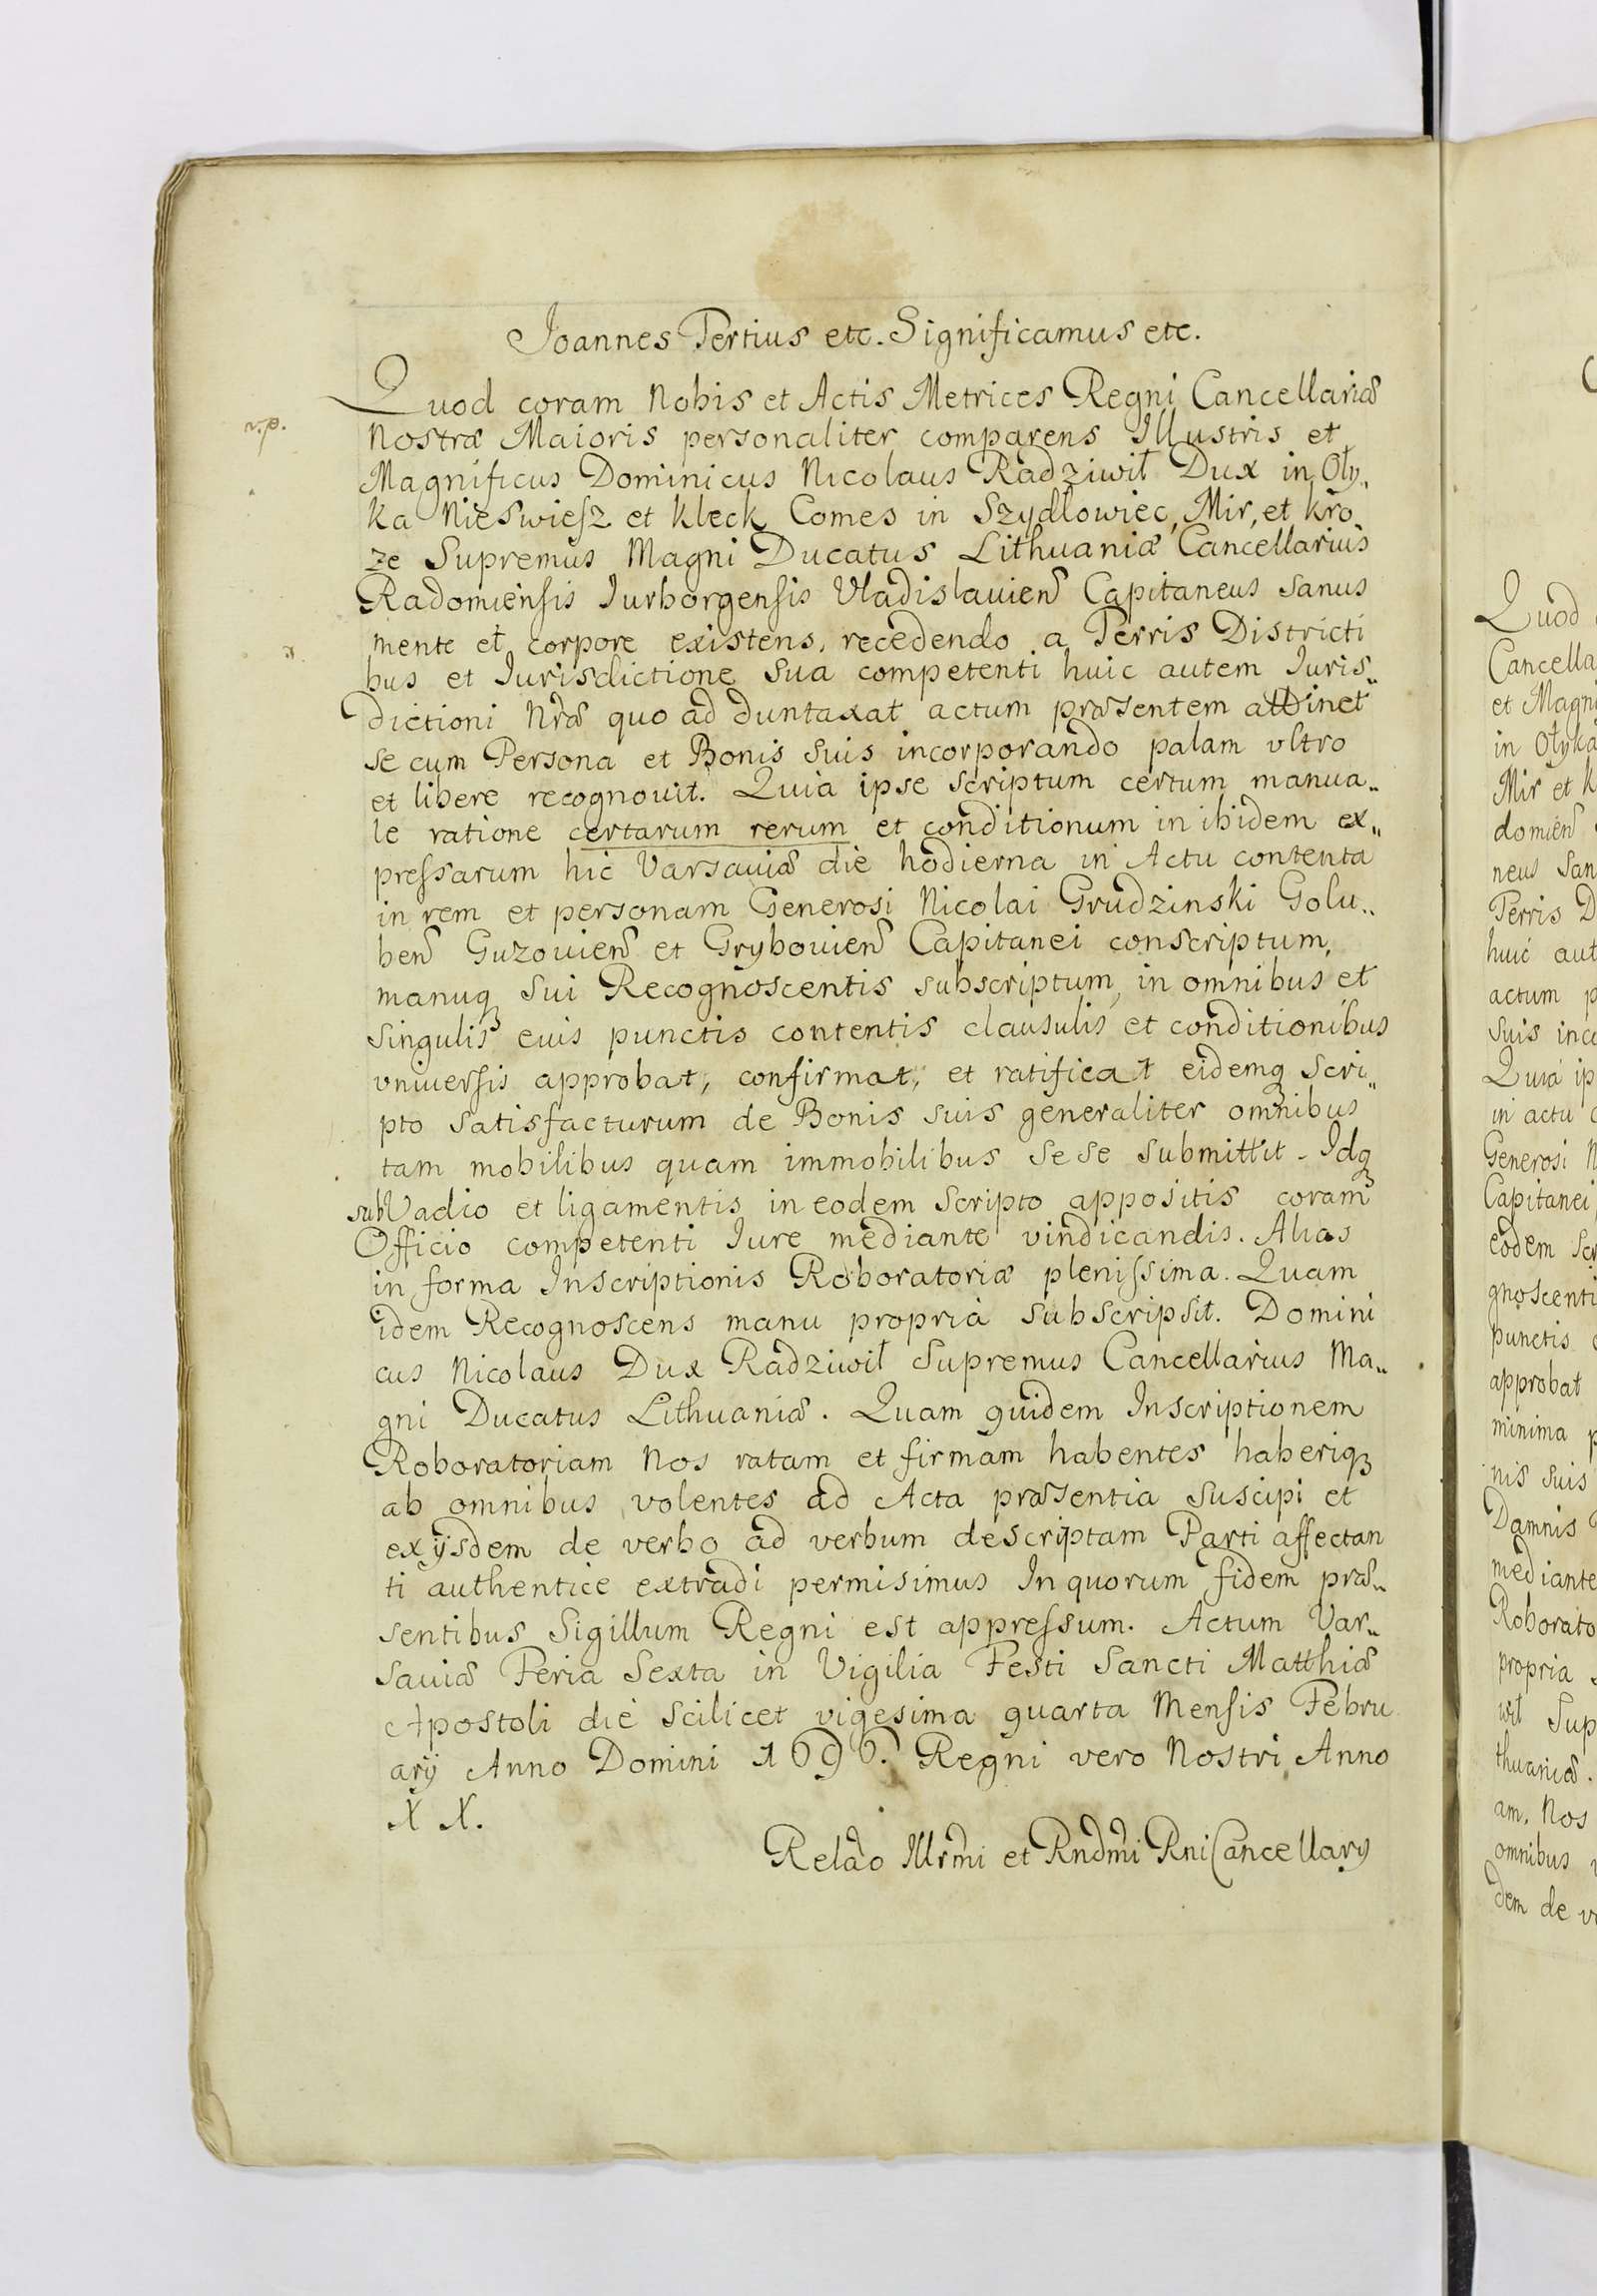 Joannes Tertius etc. Significamus etc.
Quod coram Nobis et Actis Metrices Regni Cancellariæ
Nostræ Maioris personaliter comparens Illustris et
Magnificus Dominicus Nicolaus Radziwił Dux in Oły„
ka Nieswiesz et Kleck Comes in Szydłowiec, Mir, et Kro„
ze Supremus Magni Ducatus Lithuaniæ Cancellarius
Radomiensis Iurborgensis Vladislauien Capitaneus sanus
mente et corpore existens, recedendo a Terris Districti
bus et Iurisdictione sua competenti huic autem Iuris„
dictioni Nræ quo ad duntaxat actum præsentem attinet
se cum Persona et Bonis suis incorporando palam vltro
et libere recognouit. Quia ipse scriptum certum manua„
le ratione certarum rerum et conditionum in ibidem ex„
pressarum hic Varsauiæ die hodierna in Actu contenta
in rem et personam Generosi Nicolai Grudzinski Golu„
ben Guzouien et Grybouien Capitanei conscriptum,
manuq sui Recognoscentis subscriptum, in omnibus et
singulis eius punctis contentis clausulis et conditionibus
vniuersis approbat, confirmat, et ratificat eidemq scri„
pto satisfacturum de Bonis suis generaliter omnibus
tam mobilibus quam immobilibus sese submittit. Idq
sub Vadio et ligamentis in eodem scripto appositis coram
Officio competenti Iure mediante vindicandis. Alias
in forma Inscriptionis Roboratoriæ plenissima. Quam
idem Recognoscens manu propria subscripsit. Domini
cus Nicolaus Dux Radziwił Supremus Cancellarius Ma„
gni Ducatus Lithuaniæ. Quam quidem Inscriptionem
Roboratoriam Nos ratam et firmam habentes haberiq
ab omnibus volentes ad Acta præsentia suscipi et
ex ijsdem de verbo ad verbum descriptam Parti affectan
ti authentice extradi permisimus In quorum fidem præ„
sentibus Sigillum Regni est appressum. Actum Var„
sauiæ Feria Sexta in Vigilia Festi Sancti Matthiæ
Apostoli die scilicet vigesima quarta Mensis Febru
arij Anno Domini 1696. Regni vero Nostri Anno
X X.
Relao Illrmi et Rndmi Rni Cancellarij
Quod
Cancella
et Magni
in Ołyka
Mir et K
domien
neus San
Terris D
huic aut
actum p
suis inco
Quia ip
in actu c
Generosi N
Capitanei
eodem scr
gnoscenti
punctis c
approbat
minima p
nis suis
Damnis
mediante
Roborato
propria
wił Sup
thuaniæ.
am. Nos
omnibus v
dem de v